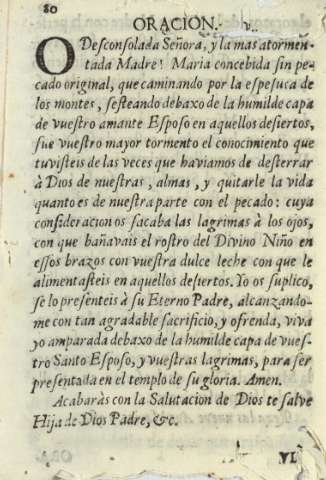 80
ORACION.
O Desconsolada Señora, y la mas atormen-
tada Madre! Maria concebida sin pe-
cado original, que caminando por la espesuca de
los montes, sesteando debaxo de la humilde capa
de vuestro amante Esposo en aquellos desiertos,
fue vuestro mayor tormento el conocimiento que
tuvisteis de las veces que haviamos de desterrar
à Dios de nuestras, almas, y quitarle la vida
quanto es de nuestra parte con el pecado: cuya
consideracion os sacaba las lagrimas à los ojos,
con que bañavais el rostro del Divino Niño en
essos brazos con vuestra dulce leche con que le
alimentasteis en aquellos desiertos. Yo os suplico,
se lo presenteis à su Eterno Padre, alcanzando-
me con tan agradable sacrificio, y ofrenda, viva
yo amparada debaxo de la humilde capa de vues-
tro Santo Esposo, y vuestras lagrimas, para ser
presentada en el templo de su gloria. Amen.
Acabaràs con la Salutacion de Dios te salve
Hija de Dios Padre, &c.
VI